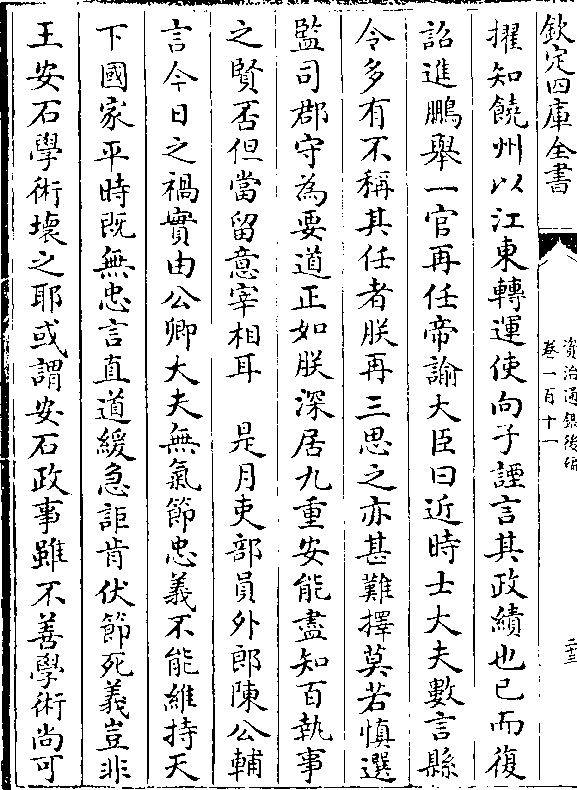 欽定四庫全書
資治通鑑後編
卷一百十一
二十三
擢知饒州以江東轉運使向子諲言其政績也已而復
詔進鵬舉一官再任帝諭大臣曰近時士大夫數言縣
令多有不稱其任者朕再三思之亦甚難擇莫若慎選
監司郡守為要道正如朕深居九重安能盡知百執事
之賢否但當留意宰相耳　是月吏部員外郎陳公輔
言今日之禍實由公卿大夫無氣節忠義不能維持天
下國家平時既無忠言直道緩急詎肯伏節死義豈非
王安石學術壞之耶或謂安石政事雖不善學術尚可